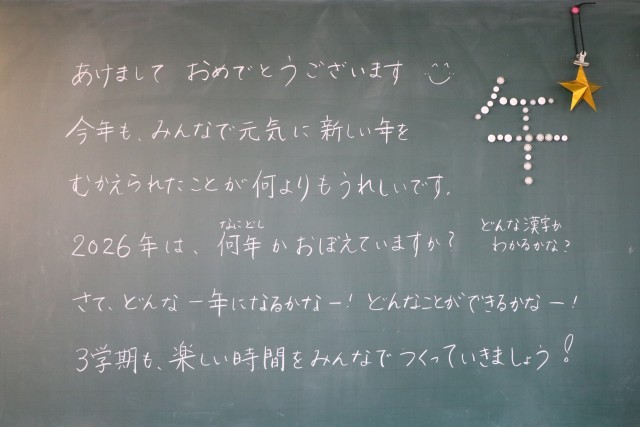 あけまして おめでとうございます
今年も、みんなで元気に新しい年を
むかえられたことが何よりもうれしいです。
2026年は、何年かおぼえていますか?
なにどし
どんな漢字か
わかるかな?
さて、どんな一年になるかなー! どんなことができるかなー!
3学期も、楽しい時間をみんなでつくっていきましょう!
午